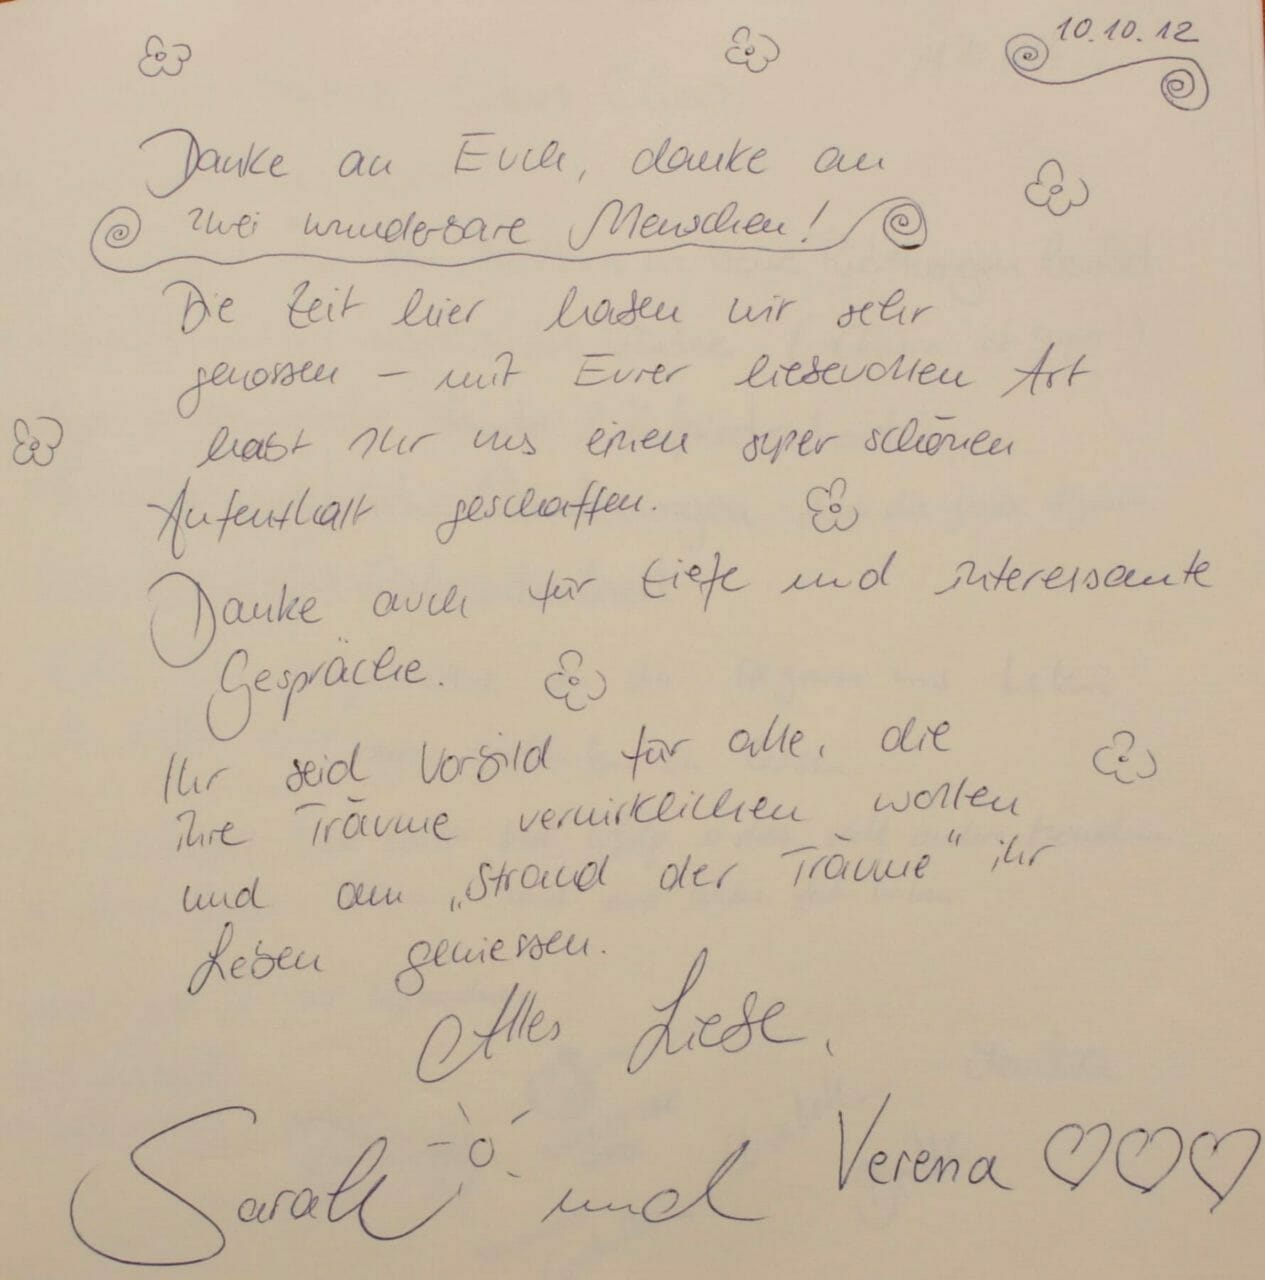 10.10.12
Danke an Euch, danke an
zwei wunderbare Menschen!
Die Zeit hier haben wir sehr
genossen – mit Eurer liebevollen Art
habt Ihr uns einen super schönen
Aufenthalt geschaffen.
Danke auch für tiefe und interessante
Gespräche.
Ihr seid Vorbild für alle, die
ihre Träume verwirklichen wollen
und am „Strand der Träume" ihr
Leben geniessen.
Alles Liebe,
Sarah und Verena